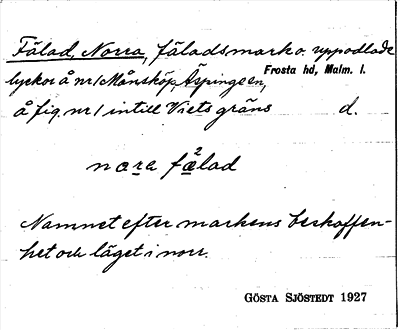 Fälad, Norra, fäladsmark o. uppodlade
lyckor å nr 1 Månsköp, Äspingeen,
Frosta hd, Malm. l.
å fig. nr 1 intill Viets gräns d.
nora fälad
Namnet efter markens beskaffen-
het och läget i norr.
GÖSTA SJÖSTEDT 1927